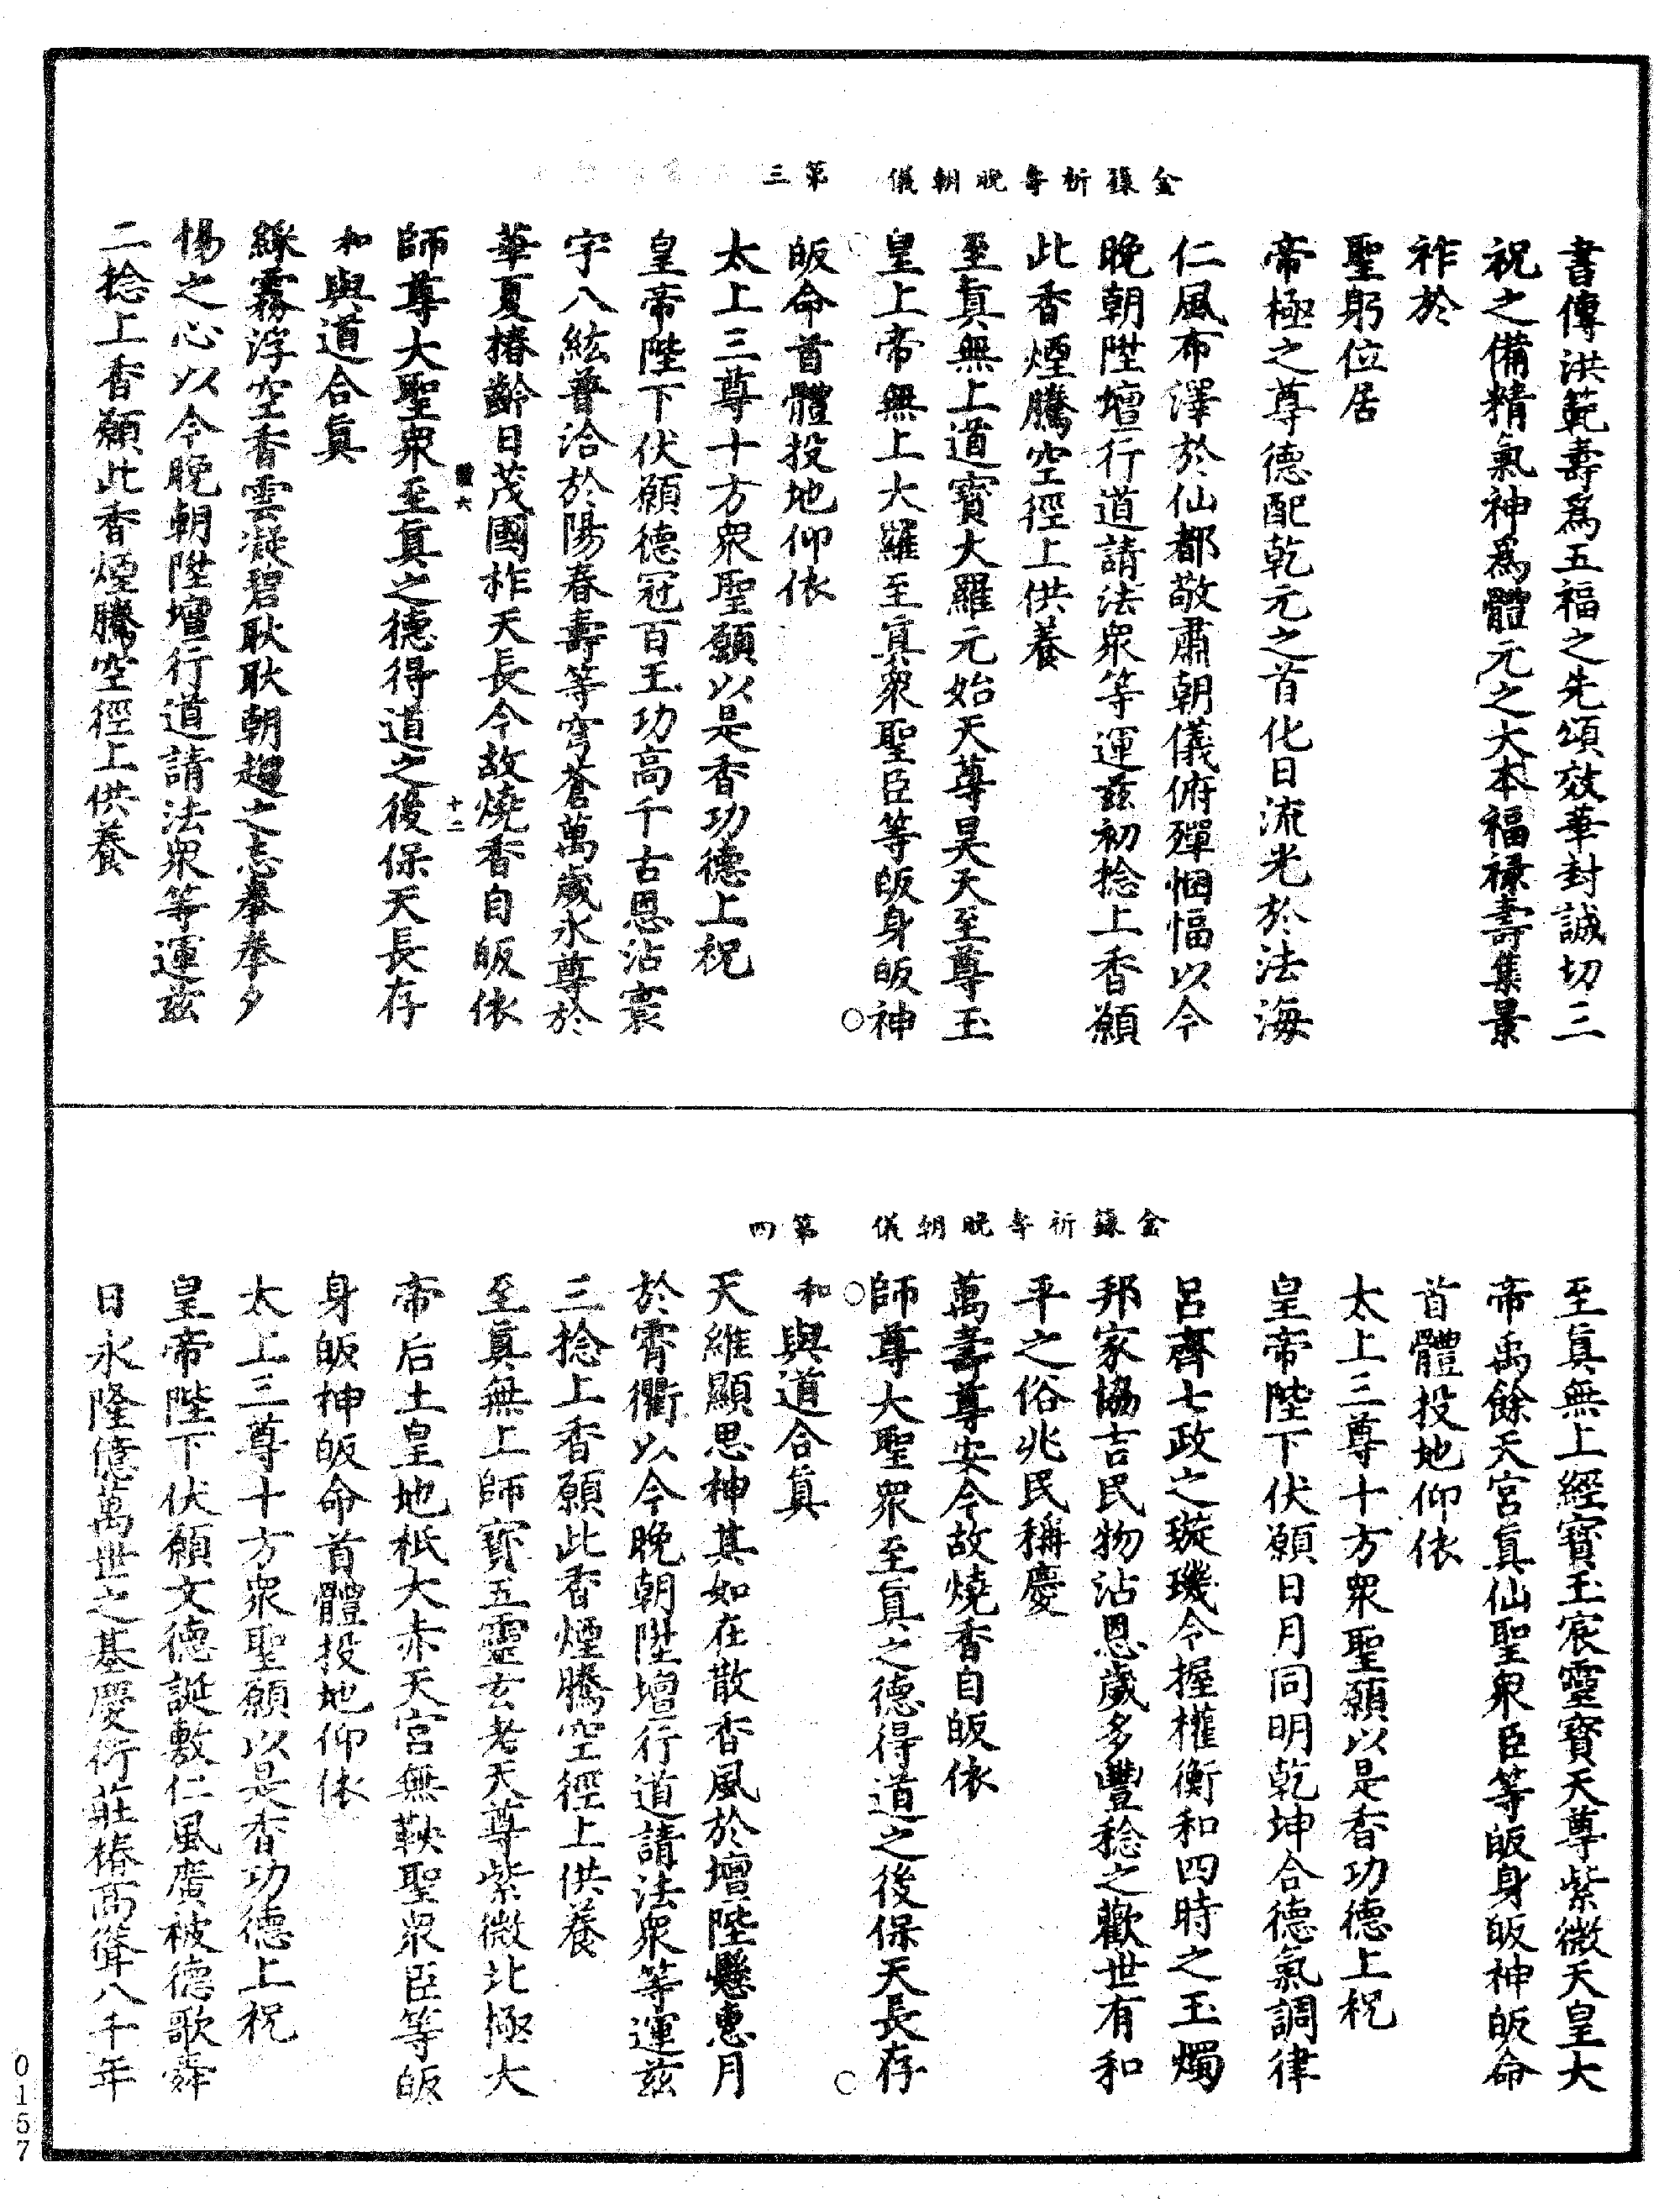 金籙祈壽晚朝儀　第三
書傳洪範壽爲五福之先頌效華封誠切三
祝之備精氣神爲體元之大本福祿壽集景
祚於
聖躬位居
帝極之尊德配乾元之首化日流光於法海
仁風布澤於仙都敬肅朝儀俯殫悃愊以今
晚朝陞壇行道請法衆等運茲初捻上香願
此香煙騰空徑上供養
至眞無上道寶大羅元始天尊昊天至尊玉
皇上帝無上大羅至眞衆聖臣等皈身皈神
皈命首體投地仰依
太上三尊十方衆聖願以是香功德上祝
皇帝陛下伏願德冠百王功高千古恩沾寰
宇八紘普洽於陽春壽等穹蒼萬歲永尊於
華夏椿齡日茂國祚天長今故燒香自皈依
十二
師尊大聖衆至眞之德得道之後保天長存
和與道合眞
綵霧浮空香雲凝碧耿耿朝趨之志拳拳夕
惕之心以今晚朝陞壇行道請法衆等運茲
二捻上香願此香煙騰空徑上供養
金籙祈壽晚朝儀　第四
至眞無上經寶玉宸靈寶天尊紫微天皇大
帝禹餘天宮眞仙聖衆臣等皈身皈神皈命
首體投地仰依
太上三尊十方衆聖願以是香功德上祝
皇帝陛下伏願日月同明乾坤合德氣調律
呂齊七政之璇璣令握權衡和四時之玉燭
邦家協吉民物沾恩歲多豐稔之歡世有和
平之俗兆民稱慶
萬壽尊安今故燒香自皈依
師尊大聖衆至眞之德得道之後保天長存
和與道合眞
天維顯思神其如在散香風於壇陛懸惠月
於霄衢以今晚朝陞壇行道請法衆等運茲
三捻上香願此香煙騰空徑上供養
至眞無上師寶五靈玄老天尊紫微北極大
帝后土皇地祇大赤天宮無鞅聖衆臣等皈
身皈神皈命首體投地仰依
太上三尊十方衆聖願以是香功德上祝
皇帝陛下伏願文德誕敷仁風廣被德歌舜
日永隆億萬世之基慶衍莊椿高聳八千年
0157